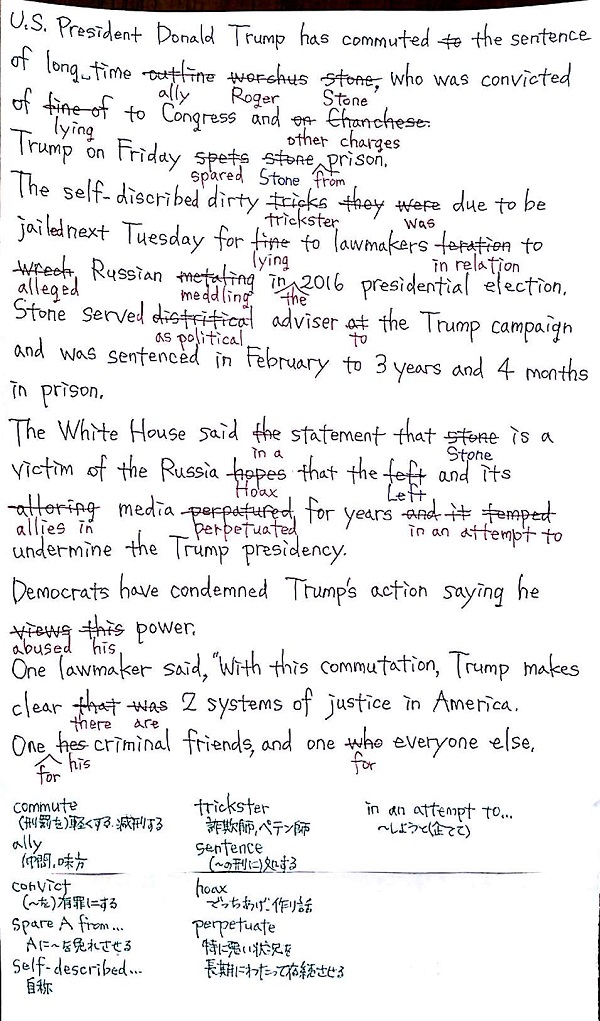 U.S. President Donald Trump has commuted to the sentence
of long-time outline worchus stone, who was convicted
ally Roger Stone
of fine of to Congress and on Chanchese.
lying other charges
Trump on Friday spets stone prison.
spared Stone from
The self-discribed dirty tricks they were due to be
trickster was
jailed next Tuesday for fine to lawmakers feration to
lying in relation
wrech, Russian metaling in 2016 presidential election.
alleged meddling the
Stone served distritical adviser at the Trump campaign
as political to
and was sentenced in February to 3 years and 4 months
in prison.
The White House said the statement that stone is a
in a Stone
victim of the Russia hopes that the left and its
Hoax Left
alloring media perpatured for years and it temped
allies in perpetuated in an attempt to
undermine the Trump presidency.
Democrats have condemned Trump's action saying he
views this power.
abused his
One lawmaker said, "With this commutation, Trump makes
clear that was 2 systems of justice in America.
there are
One hes criminal friends, and one who everyone else.
for his for
commute trickster in an attempt to...
(刑罰を)軽くする.減刑する 詐欺師,ペテン師 〜しようと(企てて)
ally sentence
仲間,味方 (〜の刑に)処する
convict hoax
(〜を)有罪にする でっちあげ.作り話
spare A from... perpetuate
Aに〜を免れさせる 特に悪い状況を
self-described... 長期にわたって存続させる
自称